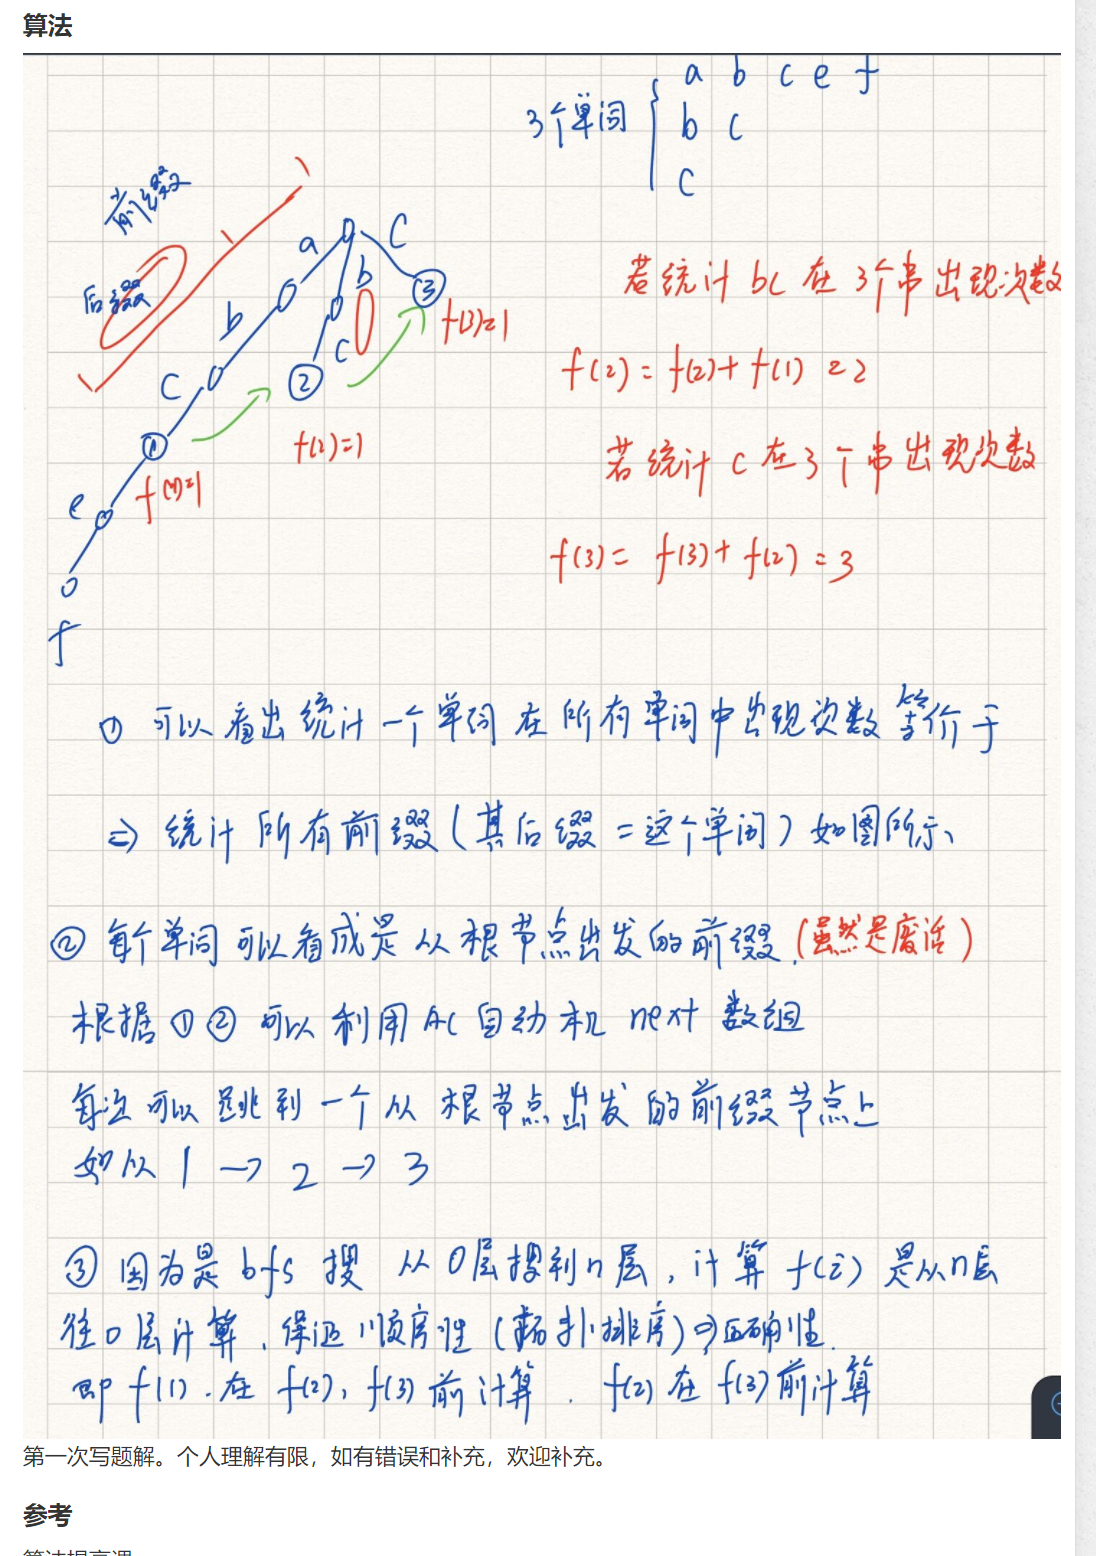 算法
a b c e f
3个单词 { b c
c
前缀
后缀
a
C
b
b
③
f(3)=1
C
C
②
f(2)=1
①
f(1)=1
e
f
若统计 bc 在 3个串出现次数
f(2) = f(2)+ f(1) = 2
若统计 c 在 3 个串出现次数
f(3) = f(3)+ f(2) = 3
① 可以看出统计一个单词在所有单词中出现次数等价于
=> 统计所有前缀(其后缀=这个单词)如图所示、
② 每个单词可以看成是从根节点出发的前缀.(虽然是废话)
根据①②可以利用AC自动机 next 数组
每次可以跳到一个从根节点出发的前缀节点上
如从 1 → 2 → 3
③ 因为是 bfs 搜 从0层搜到n层, 计算 f(i) 是从n层
往0层计算、保证顺序性(拓扑排序)的正确性.
即 f(1).在 f(2), f(3) 前计算. f(2) 在 f(3) 前计算
第一次写题解。个人理解有限，如有错误和补充，欢迎补充。
参考
算法提高课